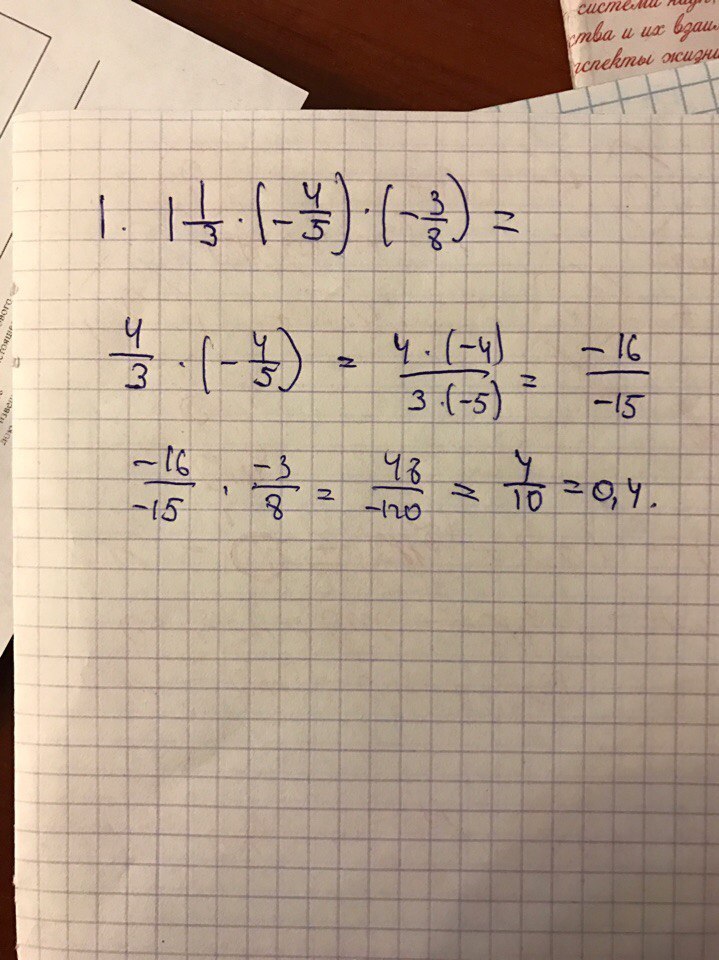 системы
ства и их взаи
аспекты жизни
1. 1 1/3 · (- 4/5) · (- 3/8) =
4/3 · (- 4/5) = 4 · (-4) / 3 · (-5) = -16/-15
-16/-15 · -3/8 = 48/-120 = 4/10 = 0,4.